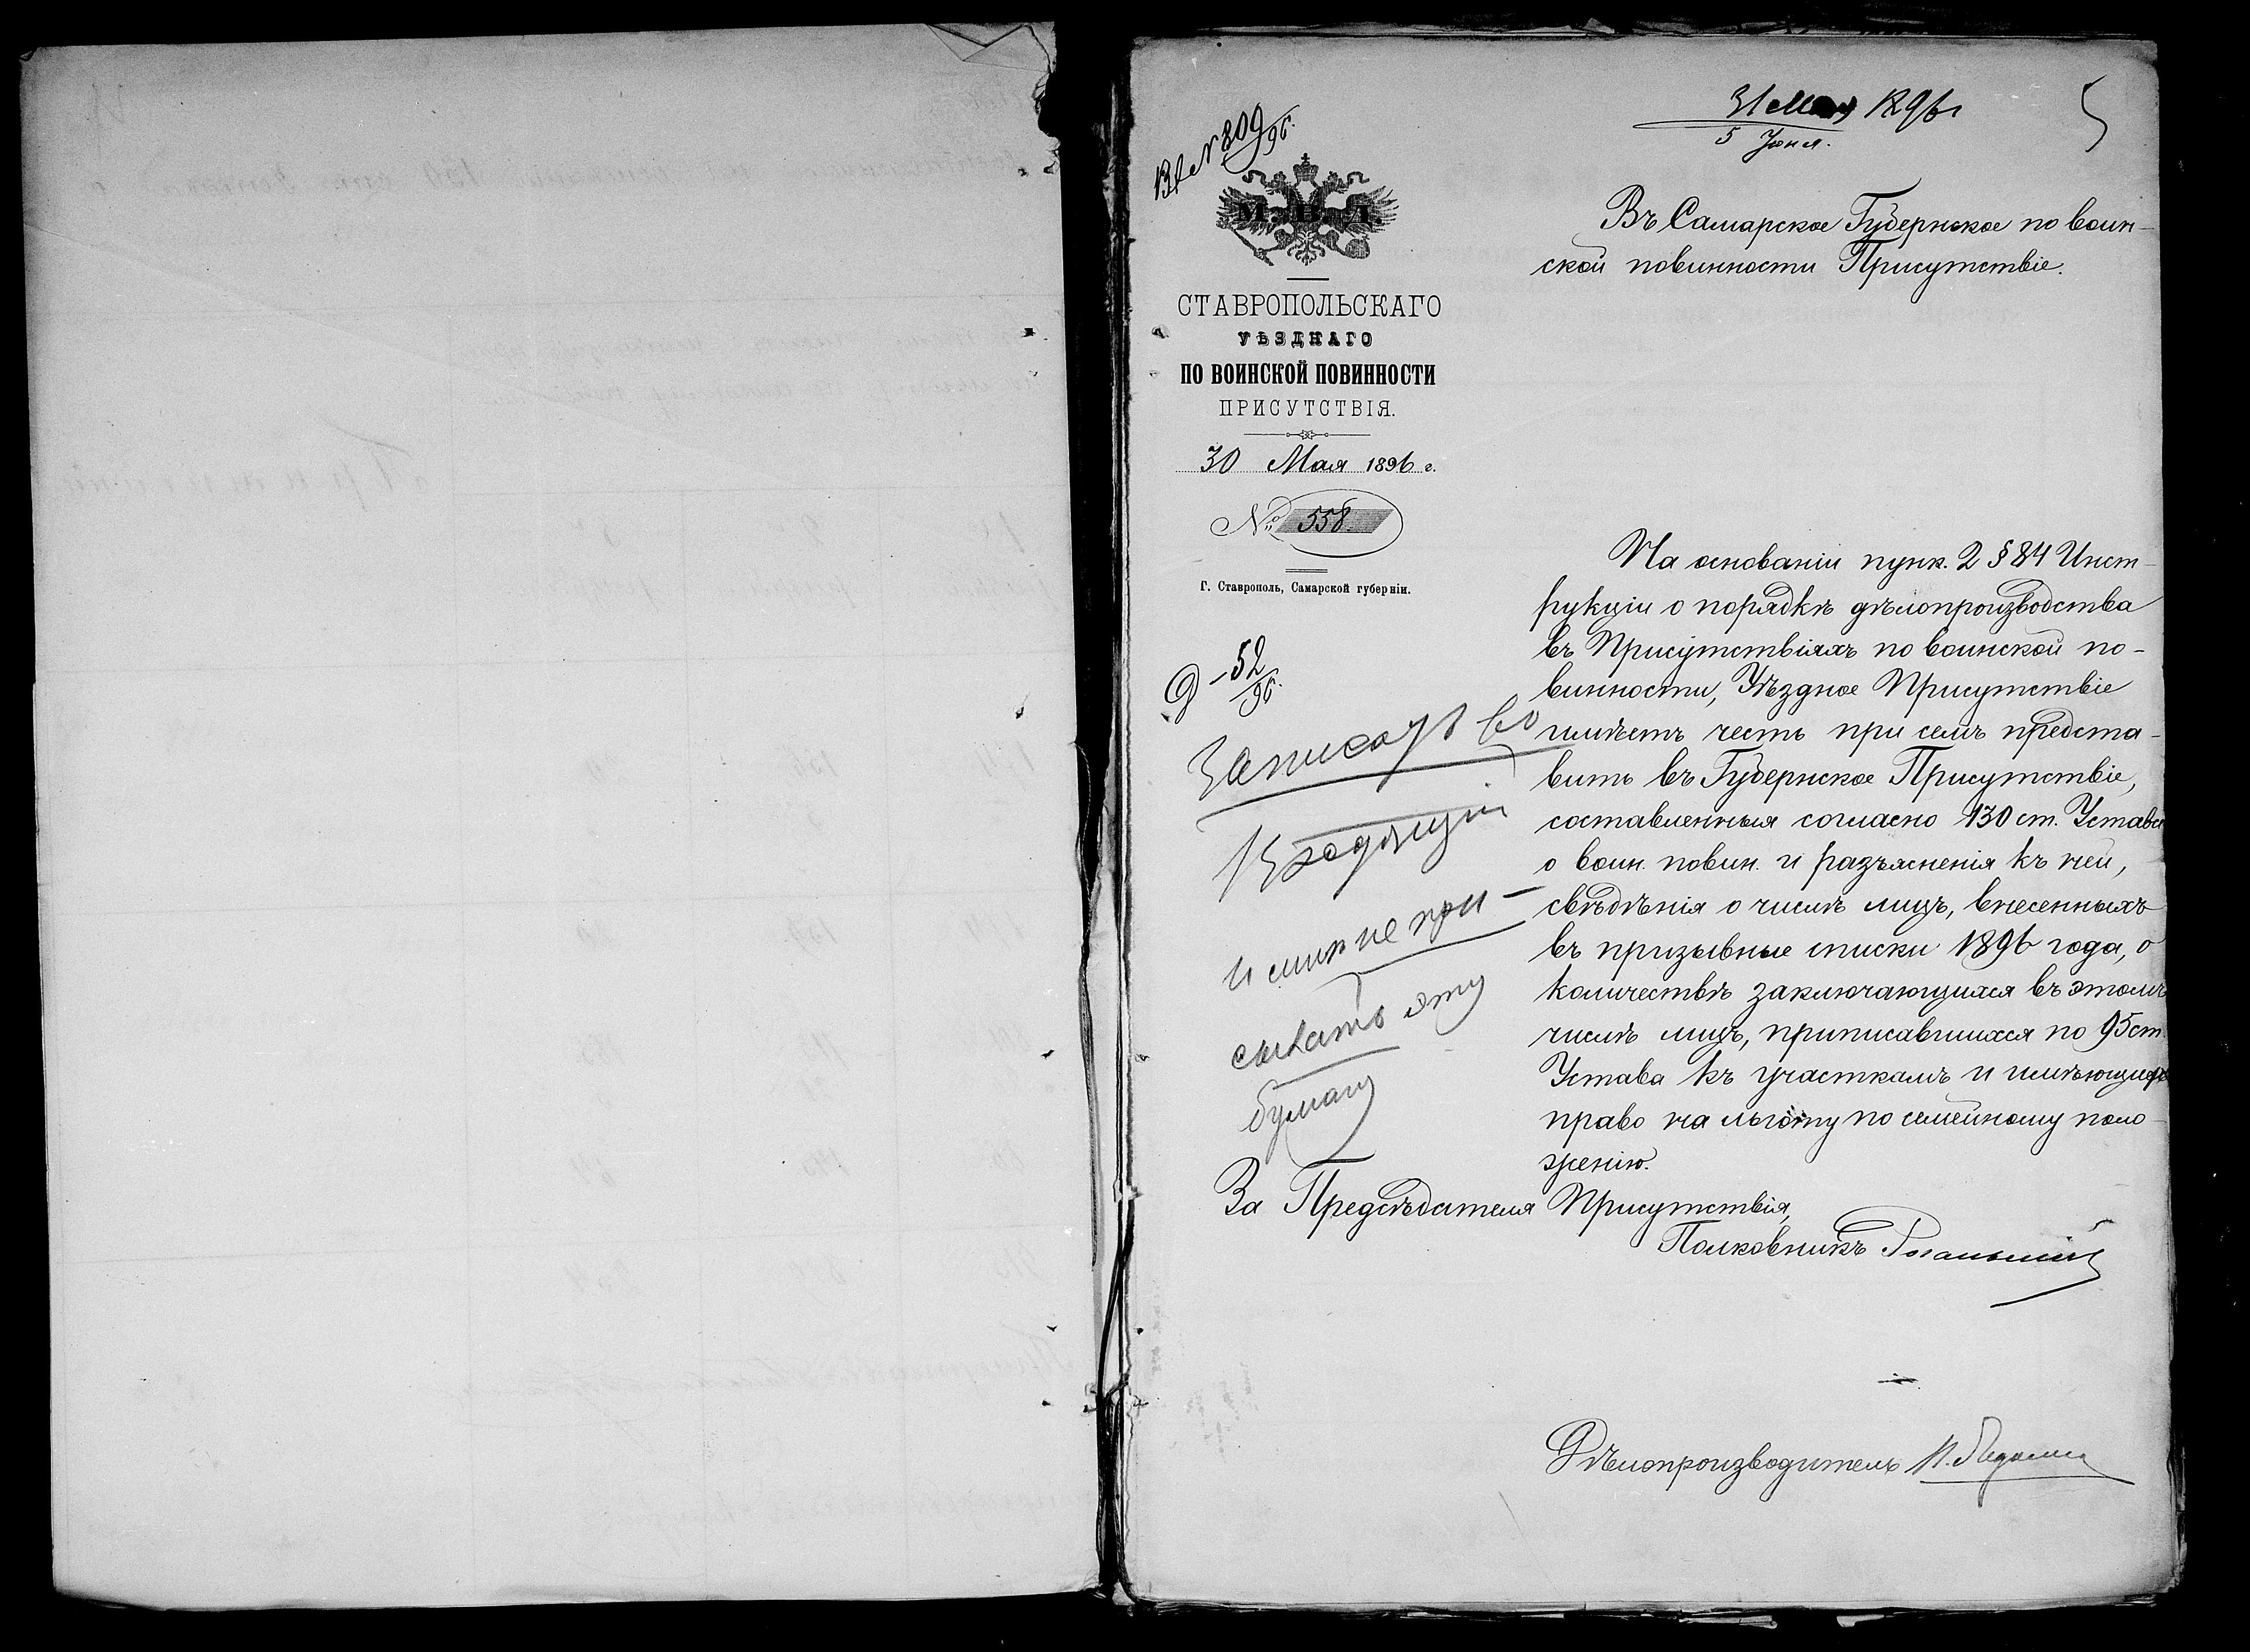 31 Мая 1896 г
5 Юня.
5
Вх № 809/96.
М. В. Д.
СТАВРОПОЛЬСКАГО
УѢЗДНАГО
ПО ВОИНСКОЙ ПОВИННОСТИ
ПРИСУТСТВІЯ.
30 Мая 1896 г.
№ 558.
Г. Ставрополь, Самарской губерніи.
Д – 52/96.
Записать во
Входящій
и мнѣ не при-
сылать эту
бумагу
Въ Самарское Губернское по воин-
ской повинности Присутствіе.
На основаніи пунк. 2 § 84 Инст-
рукціи о порядкѣ дѣлопроизводства
въ Присутствіяхъ по воинской по-
винности, Уѣздное Присутствіе
имѣетъ честь при семъ предста-
вить въ Губернское Присутствіе,
составленныя согласно 130 ст. Устава
о воин. повин. и разъясненія къ ней,
свѣдѣнія о числѣ лицъ, внесенныхъ
въ призывные списки 1896 года, о
количествѣ заключающихся въ этомъ
числѣ лицъ, приписавшихся по 95 ст.
Устава къ участкамъ и имѣющихъ
право на льготу по семейному поло-
женію.
За Предсѣдателя Присутствія,
Полковникъ
Дѣлопроизводитель